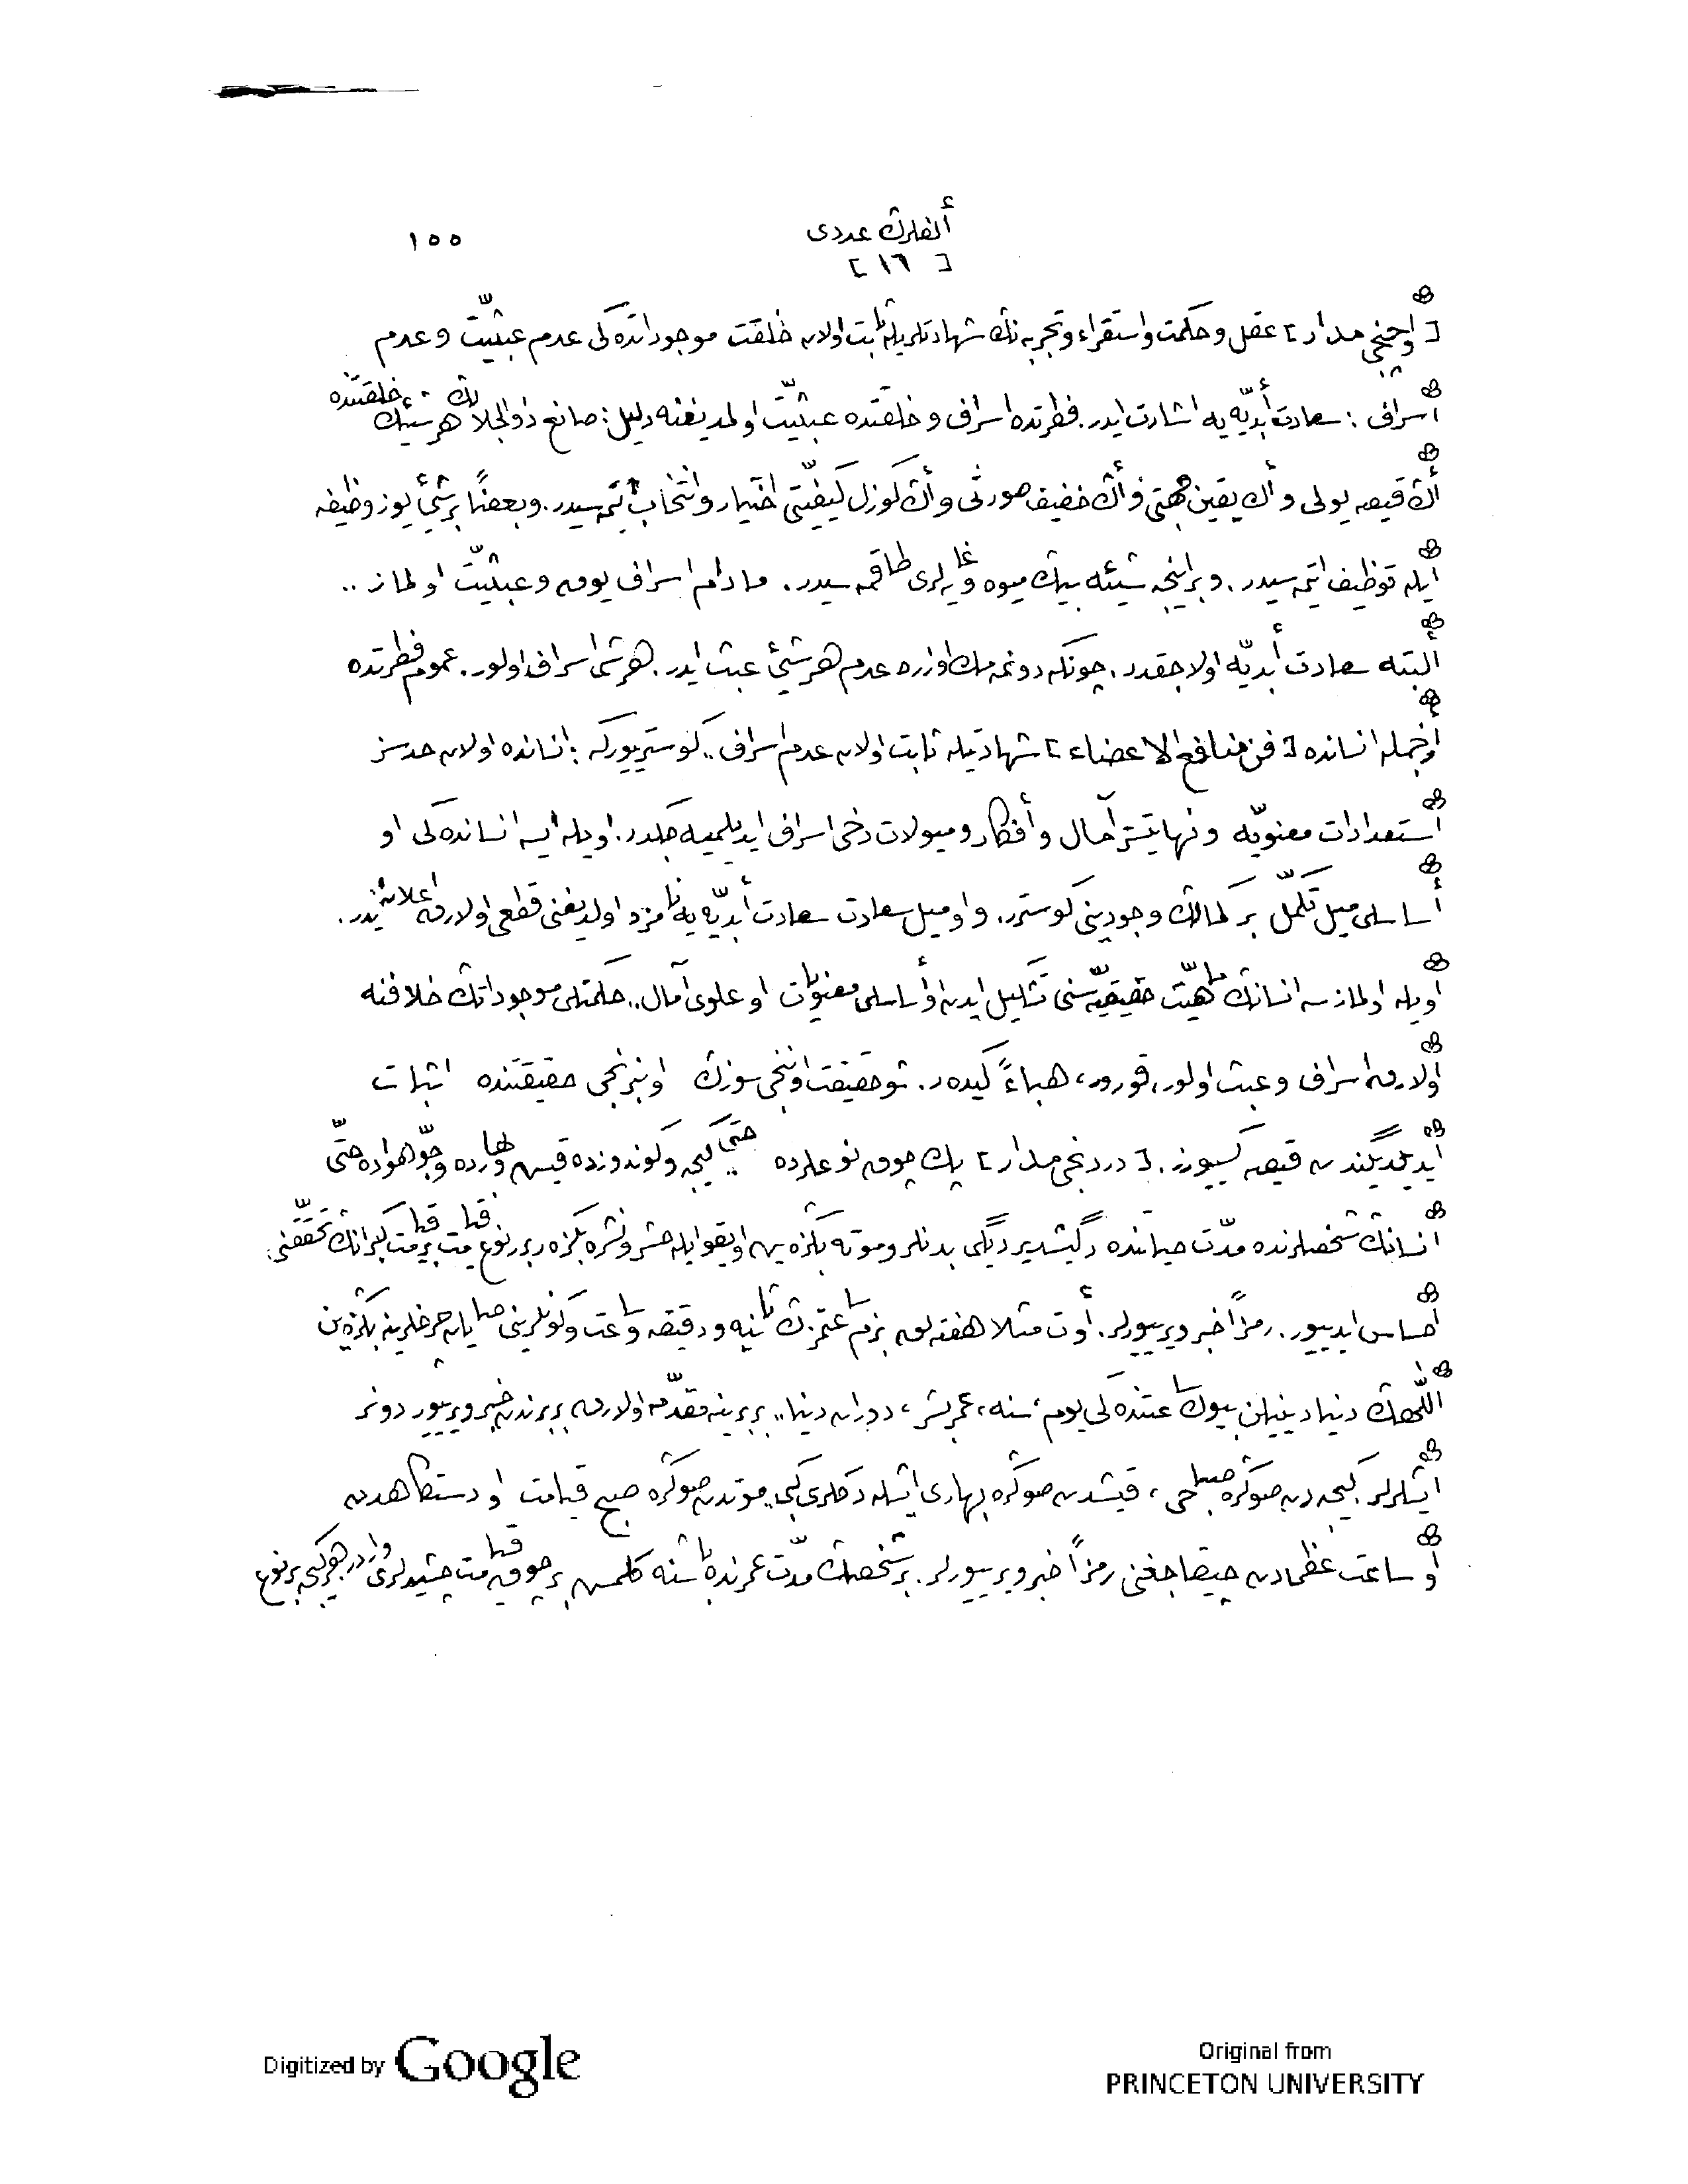 ألفلرڭ عددى ١٥٥
[ ١٦ ]
[ اوچنجى مدار ] عقل و حكمت واستقراء و تجربه نڭ شهادتلريله ثابت اولان خلقت موجوداتده كى عدم عبثيّت و عدم
اسراف : سعادت أبديّه يه اشارت ايدر. فطرتده اسراف و خلقتده عبثيّت اولمديغنه دليل : صانع ذوالجلالڭ هر شيئڭ خلقتنده
أڭ قيصه يولى و أڭ يقين جهتى و أڭ خفيف صورتى و أڭ كوزل كيفيّتى اختيار و انتخاب ايتمه سيدر. و بعضًا بر شيئ يوز وظيفه
ايله توظيف ايتمه سيدر. و بر اينجه شيئه بيڭ ميوه و غايه لرى طاقمه سيدر. مادام اسراف يوق و عبثيّت اولماز ..
ألبته سعادت أبديّه اولاجقدر. چونكه دونمه مك اوزره عدم هر شيئ عبث ايدر. هر شى اسراف اولور. عموم فطرتده
ازجمله انسانده [ فن منافع الاعضاء ] شهادتيله ثابت اولان عدم اسراف .. كوستريوركه : انسانده اولان حدسز
استعدادات معنويّه و نهايتسز آمال و أفكار و ميولات دخى اسراف ايديلميه جكدر. اويله ايسه انسانده كى او
أساسلى ميل تكمّل بر كمالڭ وجودينى كوسترر. و او ميل سعادت سعادت أبديّه يه نامزد اولديغنى قطعى اولارق اعلان ايدر.
اويله اولمازسه انسانڭ ماهيّت حقيقيّه سنى تشكيل ايدن او أساسلى معنويّات او علوى آمال .. حكمتلى موجوداتڭ خلافنه
اولارق اسراف و عبث اولور، قورور، هباءً كيده ر. شو حقيقت اوننجى سوزڭ اون برنجى حقيقتنده اثبات
ايديلديگندن قيصه كسيورز. [ دردنجى مدار ] پك چوق نوعلرده حتّى كيجه و كوندوزده قيش و بهارده و جوّ هواده حتّى
انسانڭ شخصلرنده مدّت حياتنده دگيشديرديگى بدنلر و موته بڭزه ين اويقو ايله حشر و نشره بڭزه ر بر نوع قيامت بر قيامت كبرانڭ تحقّقنى
احساس ايدييور. رمزاً خبر ويرييورلر. أوت مثلا هفته لق بزم ساعتمزڭ ثانيه و دقيقه و ساعت و كونلرينى صايان چرخلرينه بڭزه ين
اللّهڭ دنيا دينيلن بيوك ساعتنده كى يوم، سنه، عمر بشر، دوران دنيا .. بربرينه مقدّمه اولارق بربرندن خبر ويرييور دونر
ايشلرلر. كيجه دن صوڭره صباحى، قيشدن صوڭره بهارى ايشله دكلرى كبى .. موتدن صوڭره صبح قيامت او دستكاهدن
او ساعت عظمادن چيقاجغنى رمزاً خبر ويرييورلر. بر شخصڭ مدّت عمرنده باشنه كلمش بر چوق قيامت چشيدلرى واردر هر كيجه بر نوع
Digitized by Google
Original from
PRINCETON UNIVERSITY